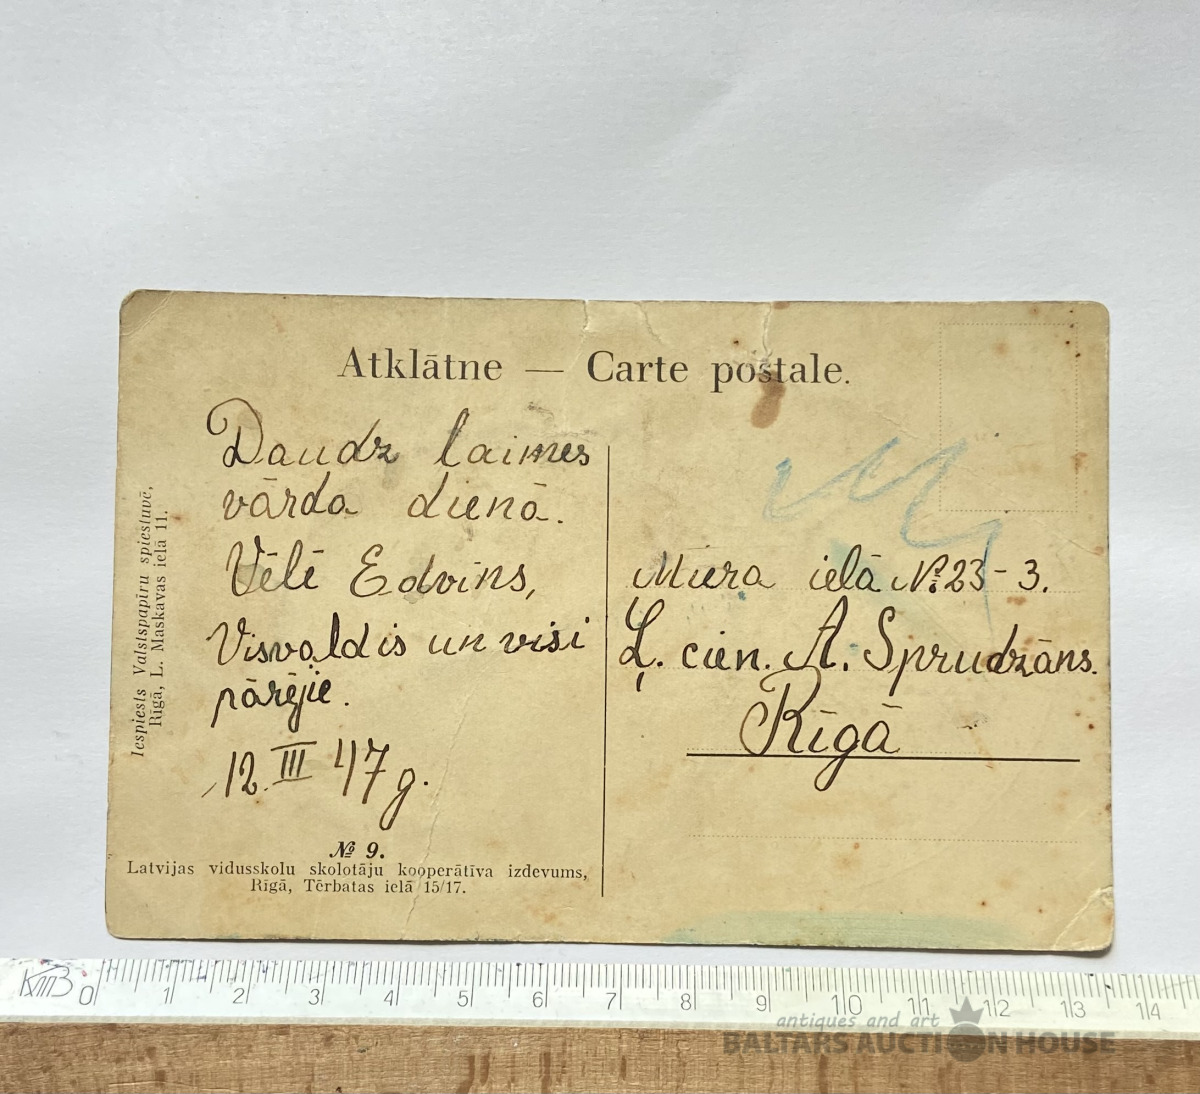 Atklātne — Carte postale.
Daudz laimes
vārda dienā.
Vēlē Edvīns,
Visvaldis un visi
pārējie.
12. III 47 g.
№ 9.
Latvijas vidusskolu skolotāju kooperātīva izdevums,
Rīgā, Tērbatas ielā 15/17.
Iespiests Valstspapīru spiestuvē,
Rīgā, L. Maskavas ielā 11.
Miera ielā №23-3.
Ļ. cien. A. Sprudzāns.
Rīgā
0 1 2 3 4 5 6 7 8 9 10 11 12 13 14
antiques and art
BALTARS AUCTION HOUSE